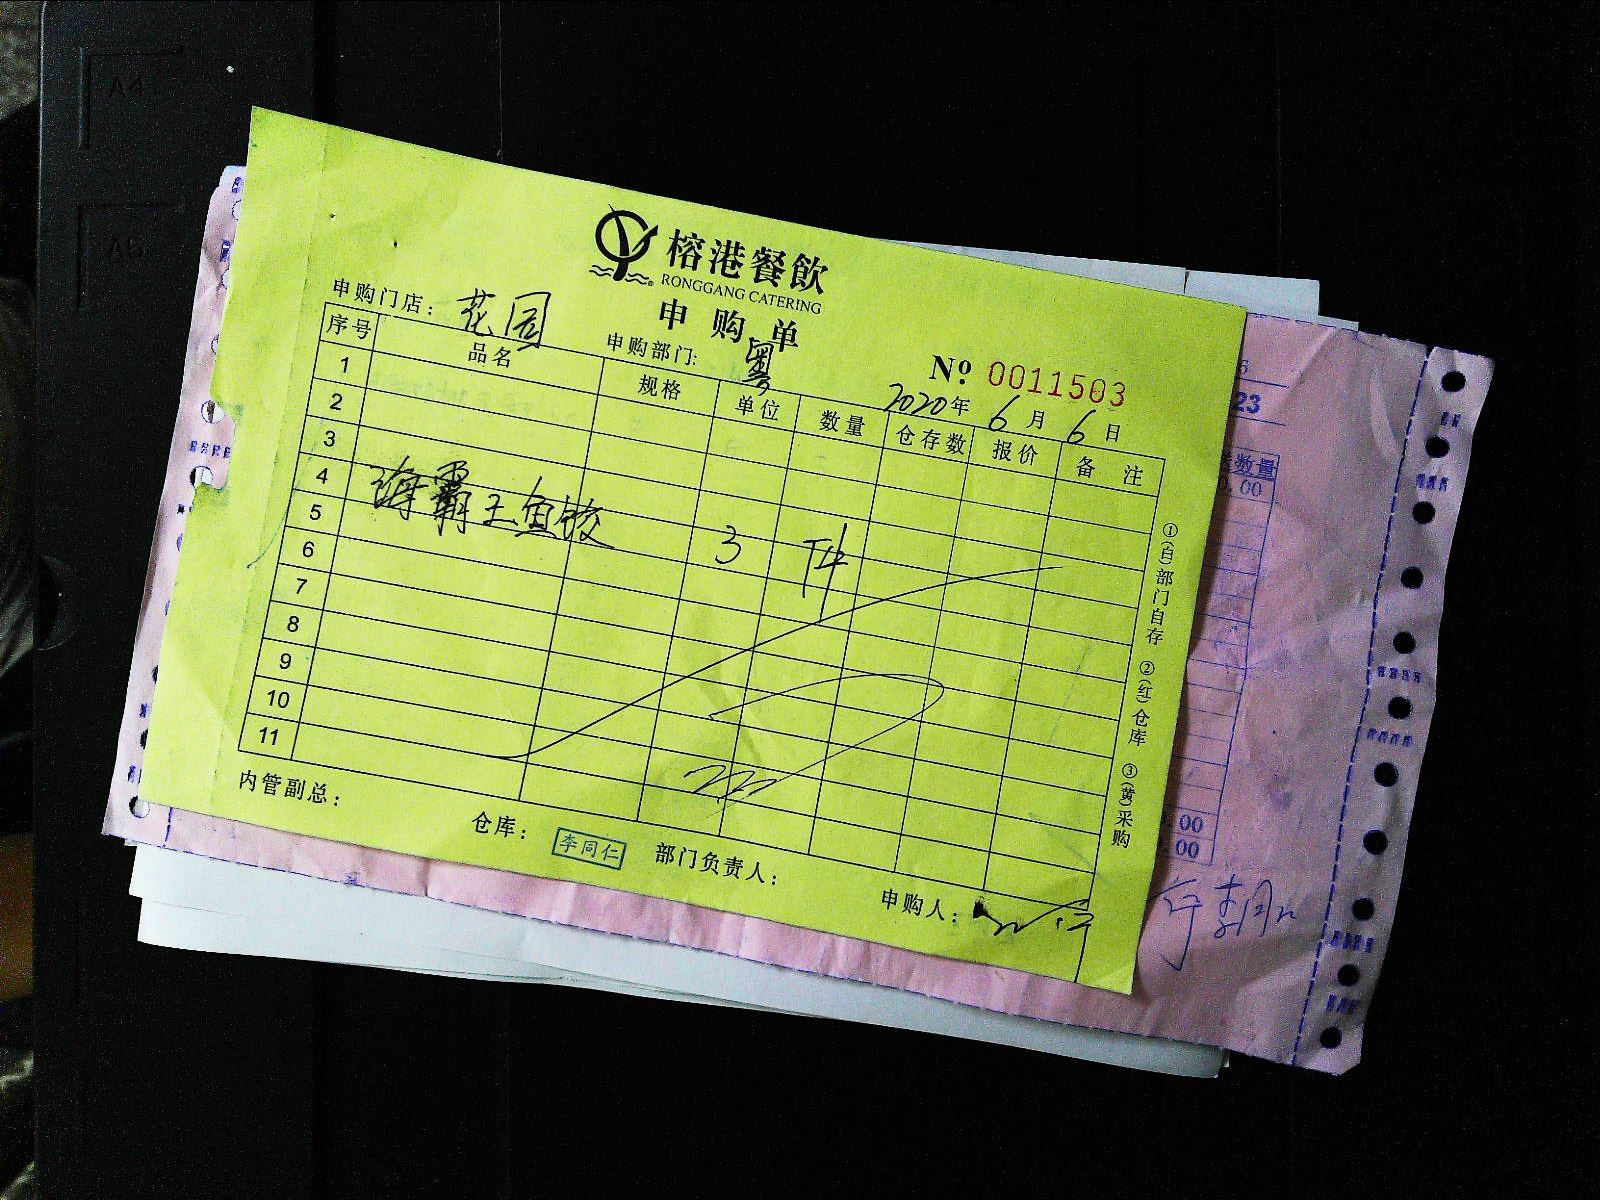 榕港餐飲
RONGGANG CATERING
申购单
申购门店：花园 申购部门：粤 № 0011503
2020年6月6日
序号 品名 规格 单位 数量 仓存数 报价 备注
1
2
3
4 海霸王鱼饺 3 件
5
6
7
8
9
10
11
①(白)部门自存 ②(红)仓库 ③(黄)采购
内管副总： 仓库：李同仁 部门负责人： 申购人：
23
数量
.00
.00
.00
A4
A5